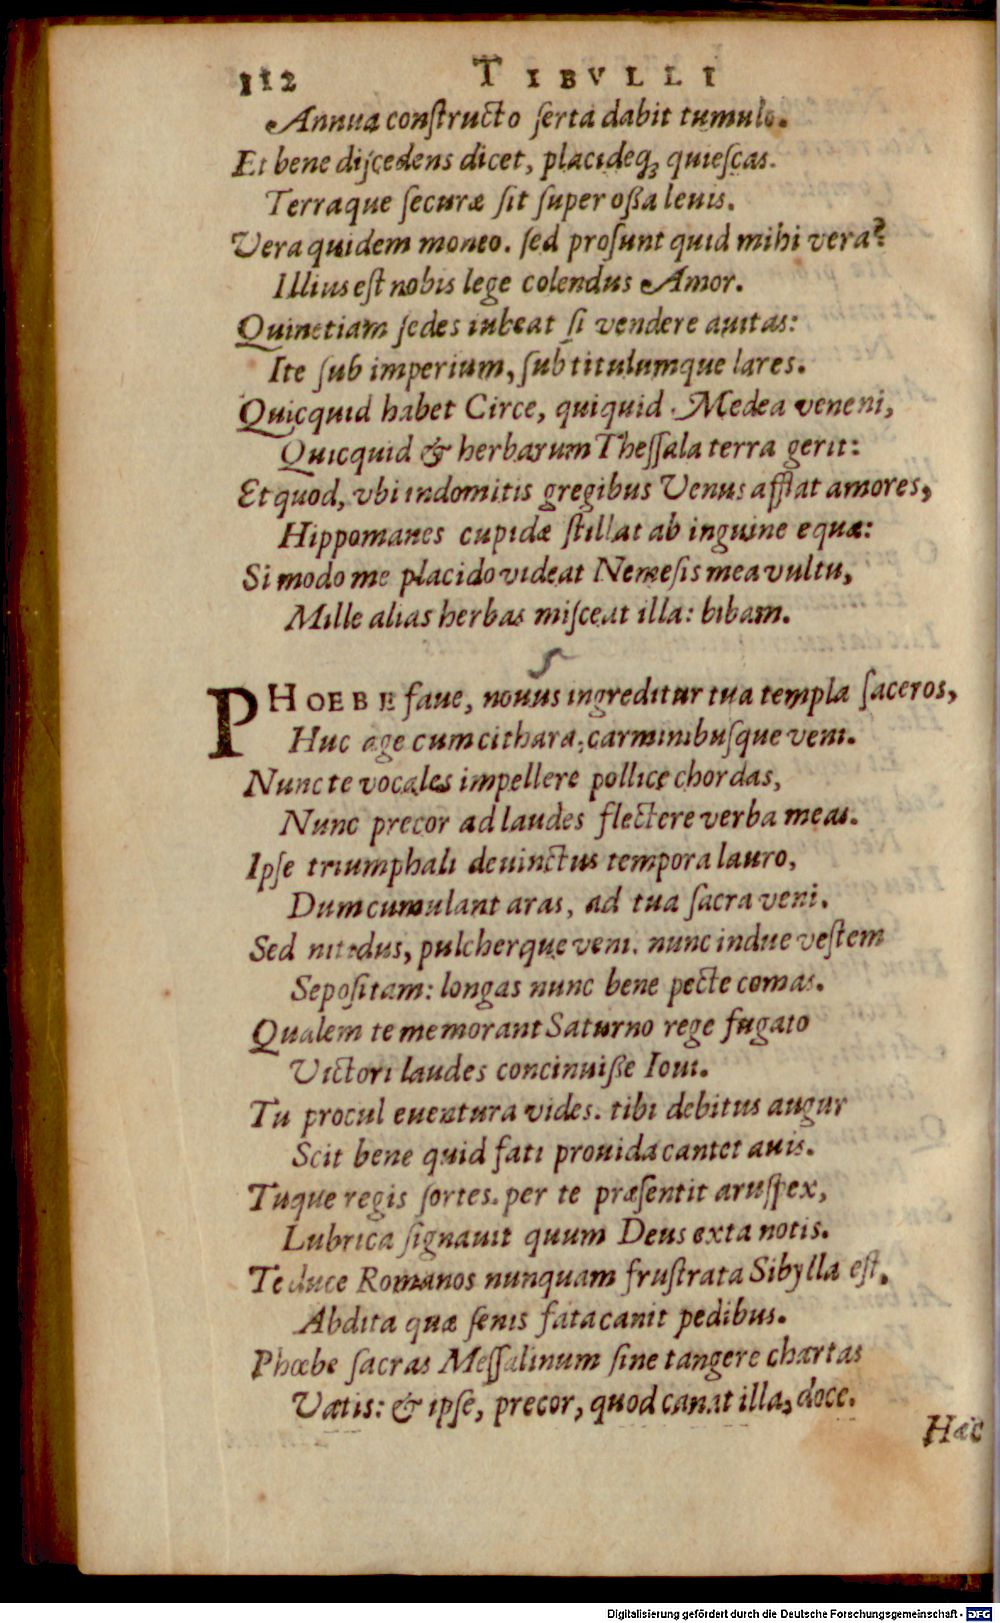 112 TIBVLLI
Annua constructo ſerta dabit tumulo.
Et bene diſcedens dicet, placideq; quieſcas.
Terraque ſecuræ ſit ſuper oßa leuis.
Vera quidem moneo. ſed proſunt quid mihi vera?
Illius eſt nobis lege colendus Amor.
Quinetiam ſedes iubeat ſi vendere auitas:
Ite ſub imperium, ſub titulumque lares.
Quicquid habet Circe, quiquid Medea veneni,
Quicquid & herbarum Theſſala terra gerit:
Et quod, vbi indomitis gregibus Venus afflat amores,
Hippomanes cupidæ ſtillat ab inguine equæ:
Si modo me placido videat Nemeſis mea vultu,
Mille alias herbas miſceat illa: bibam.
5
PHOEBE faue, nouus ingreditur tua templa ſaceros,
Huc age cum cithara, carminibuſque veni.
Nunc te vocales impellere pollice chordas,
Nunc precor ad laudes flectere verba meas.
Ipſe triumphali deuinctus tempora lauro,
Dum cumulant aras, ad tua ſacra veni.
Sed nitidus, pulcherque veni. nunc indue veſtem
Sepoſitam: longas nunc bene pecte comas.
Qualem te memorant Saturno rege fugato
Victori laudes concinuiße Ioui.
Tu procul euentura vides. tibi debitus augur
Scit bene quid fati prouida cantet auis.
Tuque regis ſortes. per te præſentit aruſpex,
Lubrica ſignauit quum Deus exta notis.
Te duce Romanos nunquam fruſtrata Sibylla eſt,
Abdita quæ ſenis fata canit pedibus.
Phœbe ſacras Meſſalinum ſine tangere chartas
Vatis: & ipſe, precor, quod canat illa, doce.
Hæc
Digitalisierung gefördert durch die Deutsche Forschungsgemeinschaft - DFG